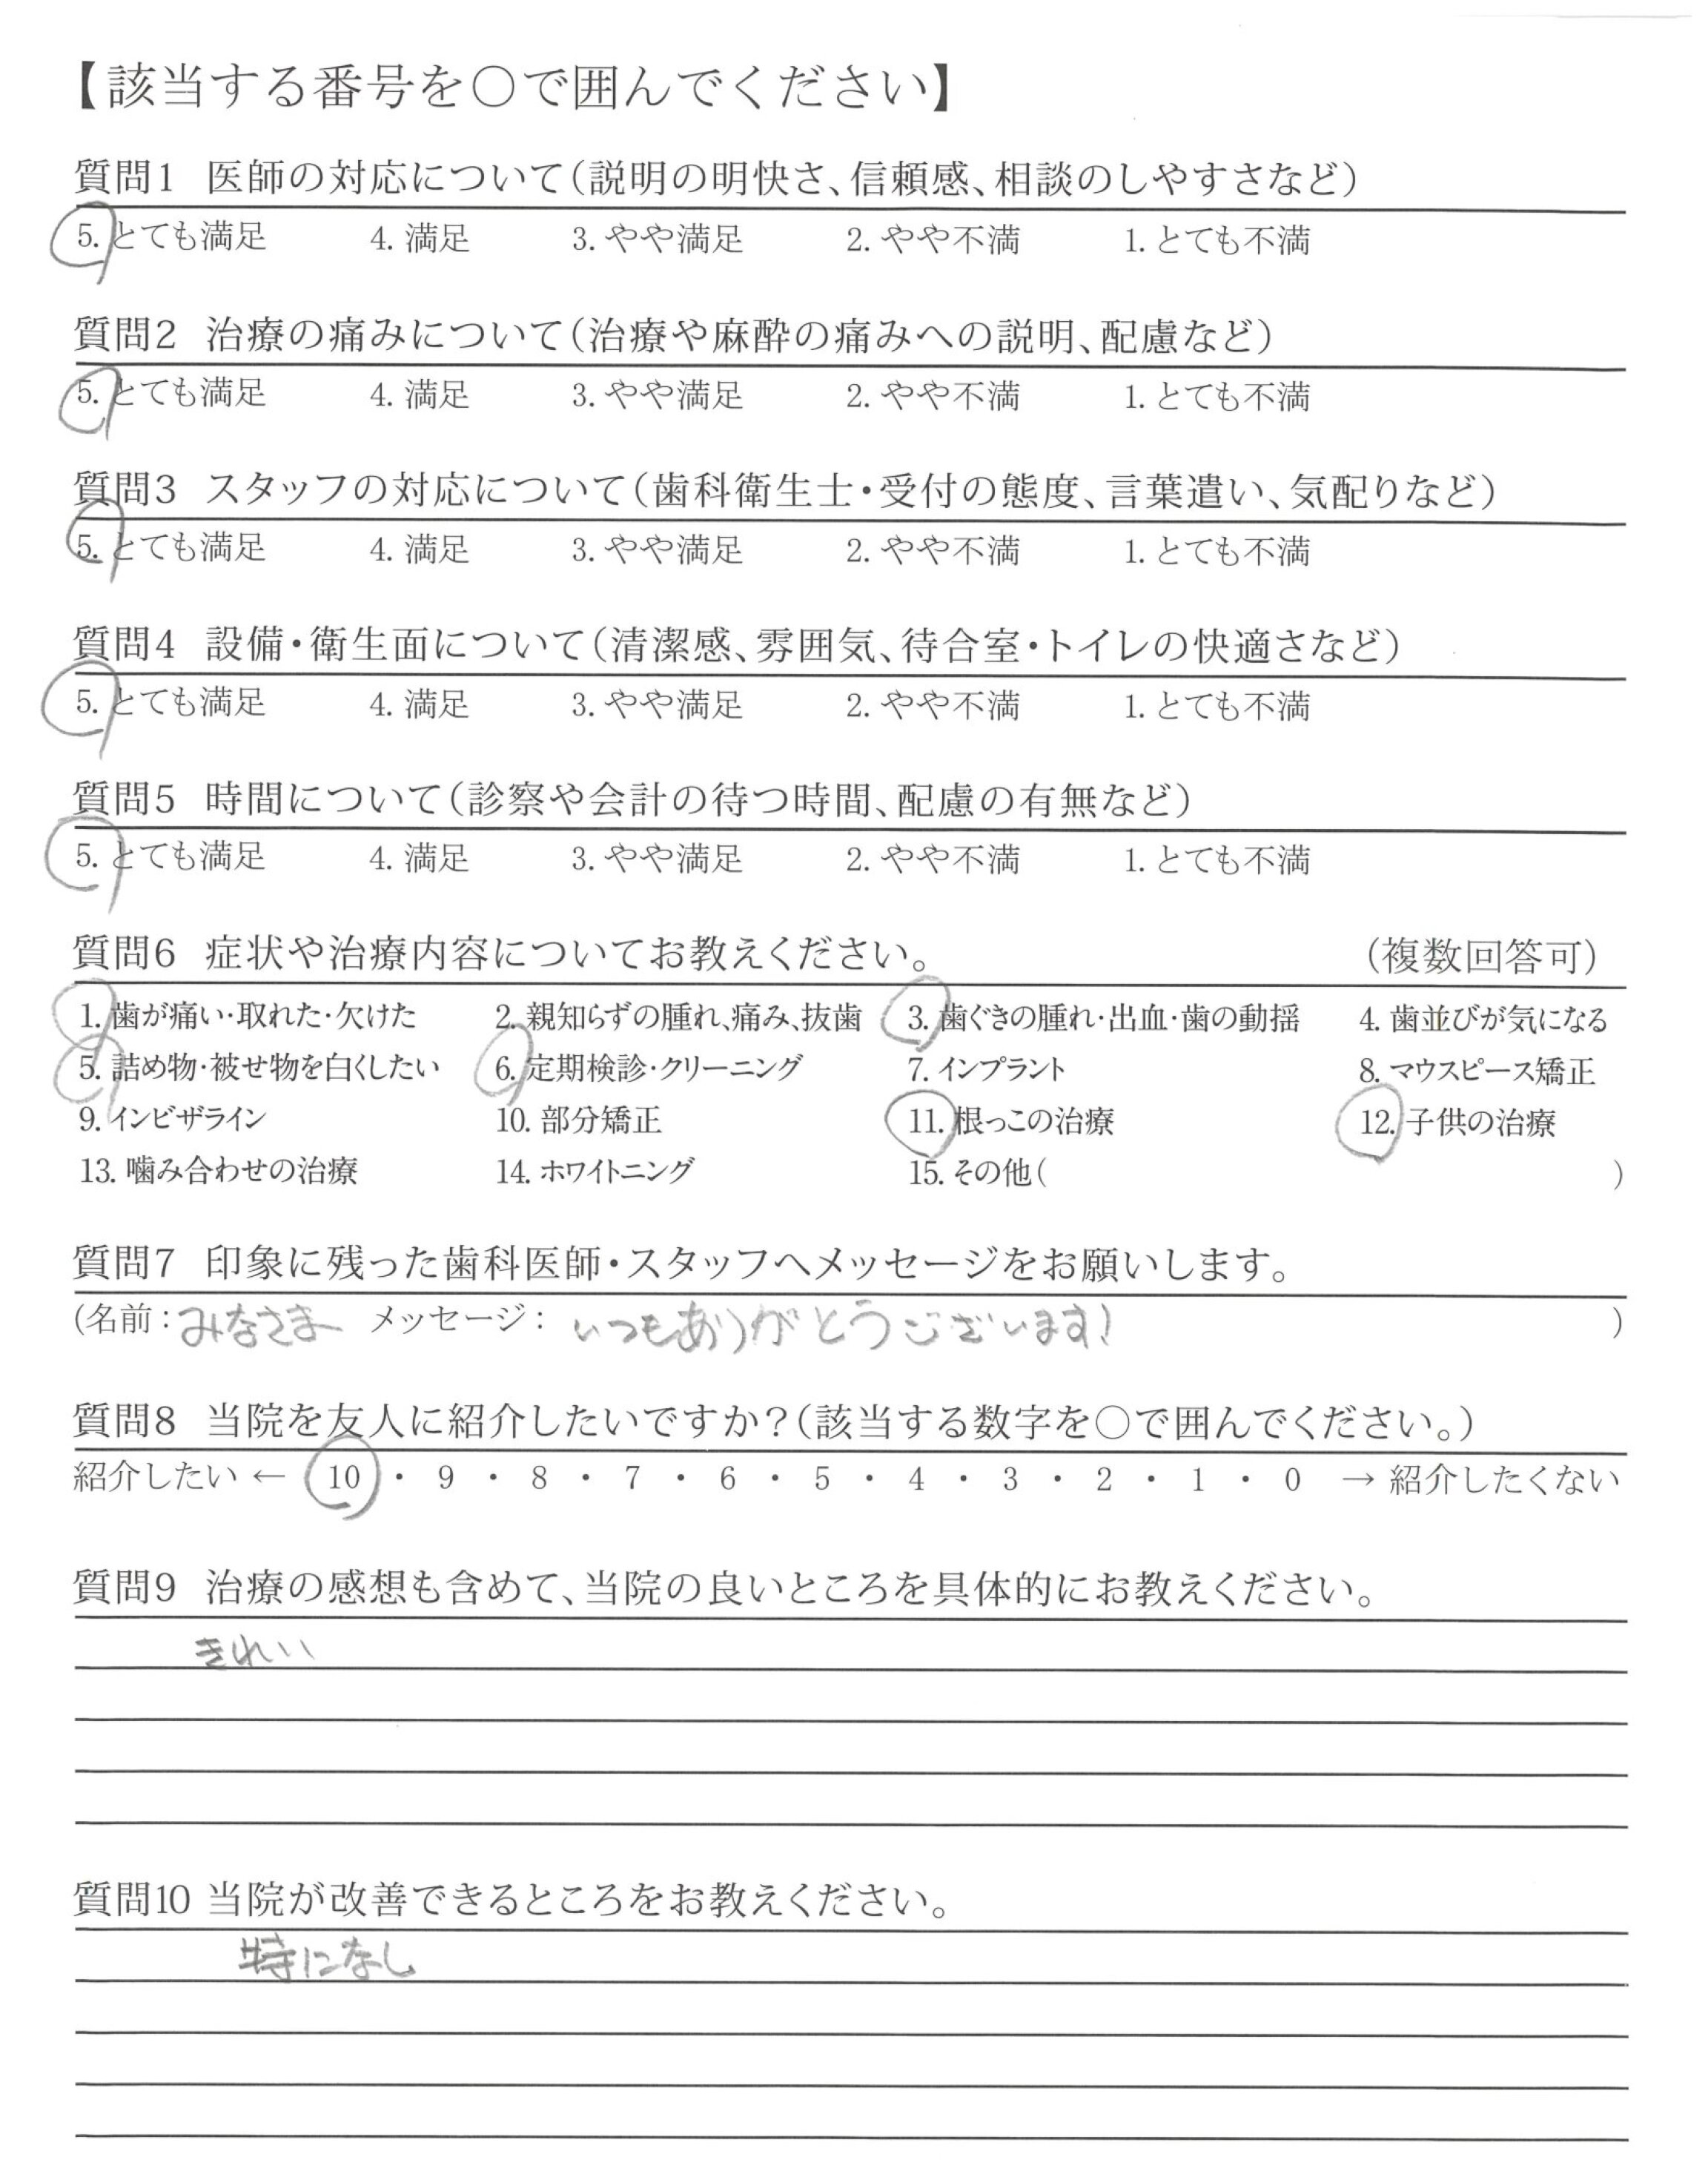 【該当する番号を○で囲んでください】
質問1 医師の対応について(説明の明快さ、信頼感、相談のしやすさなど)
5. とても満足 4. 満足 3. やや満足 2. やや不満 1. とても不満
質問2 治療の痛みについて(治療や麻酔の痛みへの説明、配慮など)
5. とても満足 4. 満足 3. やや満足 2. やや不満 1. とても不満
質問3 スタッフの対応について(歯科衛生士・受付の態度、言葉遣い、気配りなど)
5. とても満足 4. 満足 3. やや満足 2. やや不満 1. とても不満
質問4 設備・衛生面について(清潔感、雰囲気、待合室・トイレの快適さなど)
5. とても満足 4. 満足 3. やや満足 2. やや不満 1. とても不満
質問5 時間について(診察や会計の待つ時間、配慮の有無など)
5. とても満足 4. 満足 3. やや満足 2. やや不満 1. とても不満
質問6 症状や治療内容についてお教えください。 (複数回答可)
1. 歯が痛い・取れた・欠けた 2. 親知らずの腫れ、痛み、抜歯 3. 歯ぐきの腫れ・出血・歯の動揺 4. 歯並びが気になる
5. 詰め物・被せ物を白くしたい 6. 定期検診・クリーニング 7. インプラント 8. マウスピース矯正
9. インビザライン 10. 部分矯正 11. 根っこの治療 12. 子供の治療
13. 噛み合わせの治療 14. ホワイトニング 15. その他( )
質問7 印象に残った歯科医師・スタッフへメッセージをお願いします。
(名前：みなさま メッセージ： いつもありがとうございます! )
質問8 当院を友人に紹介したいですか？(該当する数字を○で囲んでください。)
紹介したい ← 10 ・ 9 ・ 8 ・ 7 ・ 6 ・ 5 ・ 4 ・ 3 ・ 2 ・ 1 ・ 0 → 紹介したくない
質問9 治療の感想も含めて、当院の良いところを具体的にお教えください。
きれい
質問10 当院が改善できるところをお教えください。
特になし